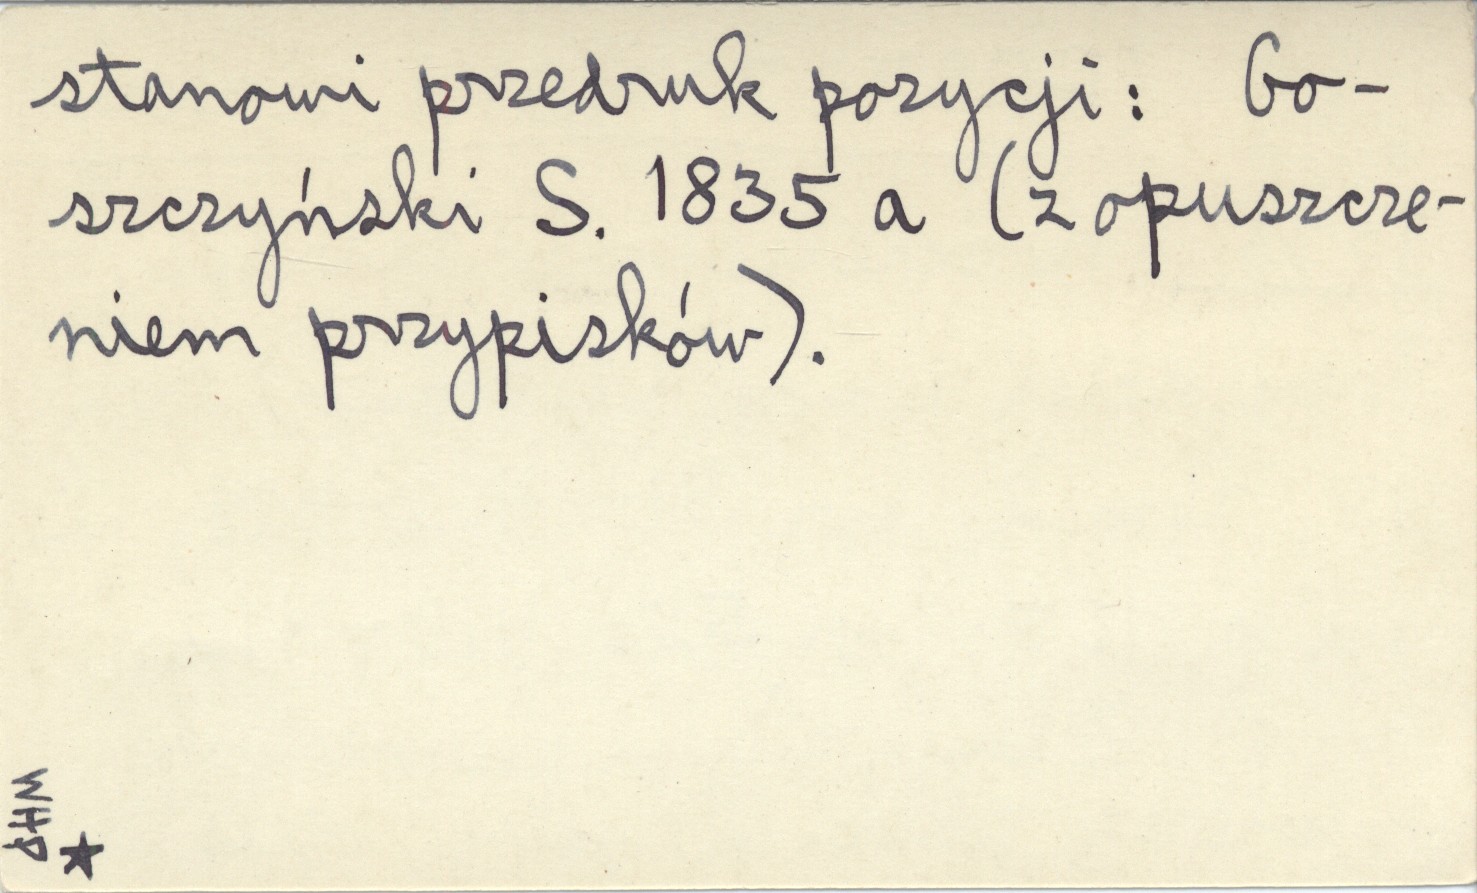 stanowi przedruk pozycji: Go-
szczyński S. 1835 a (z opuszcze-
niem przypisków).